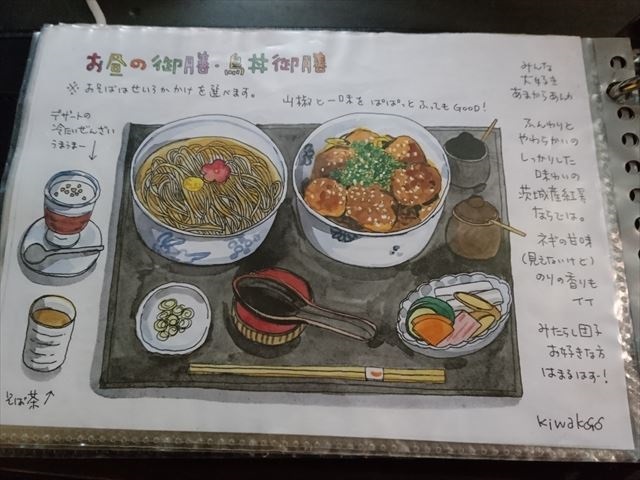 お昼の御膳・鳥丼御膳
※ お召そばはせいろかかけを選べます。
山椒と一味をぱぱっとふってもGOOD!
デザートの
冷たいぜんざい
うまうまー
そば茶
みんな
大好き
あまからあんか
ふんわりと
やわらかいの
しっかりした
味わいの
茨城産紅実
ならでは。
ネギの甘味
(見えないけど)
のりの香りも
イイ
みたらし団子
お好きな方
はまるはずー!
kiwakoGo